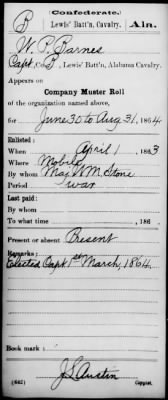 (Confederate.)
B Lewis' Batt'n, Cavalry. Ala.
W. P. Barnes
Capt, Co. B, Lewis' Batt'n, Alabama Cavalry.
Appears on
Company Muster Roll
of the organization named above,
for June 30 to Aug 31, 1864
Enlisted:
When April 1, 1863
Where Mobile
By whom Maj W M Stone
Period war
Last paid:
By whom
To what time , 186 .
Present or absent Present
Remarks:
Elected Capt 1st March, 1864.
Book mark:
J L Austin
(642) Copyist.